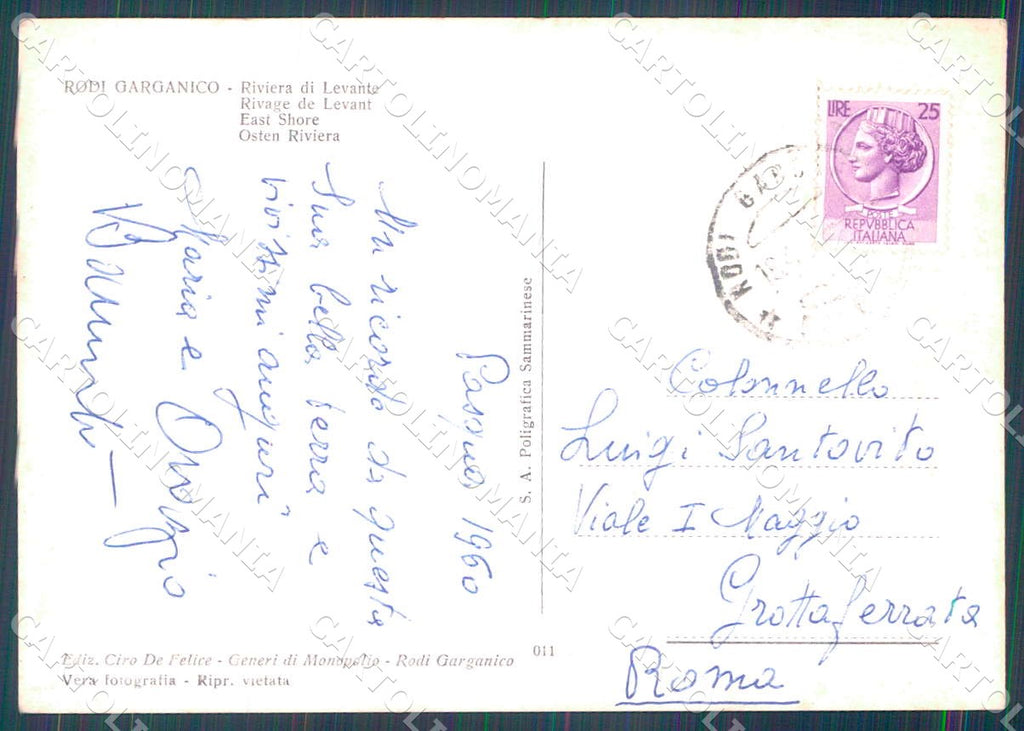 RODI GARGANICO - Riviera di Levante
Rivage de Levant
East Shore
Osten Riviera
LIRE 25
POSTE
REPVBBLICA
ITALIANA
RODI GARG
Pasqua 1960
Un ricordo da questa
Sua bella terra e
vivissimi auguri
Maria e Orazio
S. A. Poligrafica Sammarinese
Colonnello
Luigi Santovito
Viale I Maggio
Grottaferrata
Roma
Ediz. Ciro De Felice - Generi di Monopolio - Rodi Garganico
Vera fotografia - Ripr. vietata
011
CARTOLINOMANIA